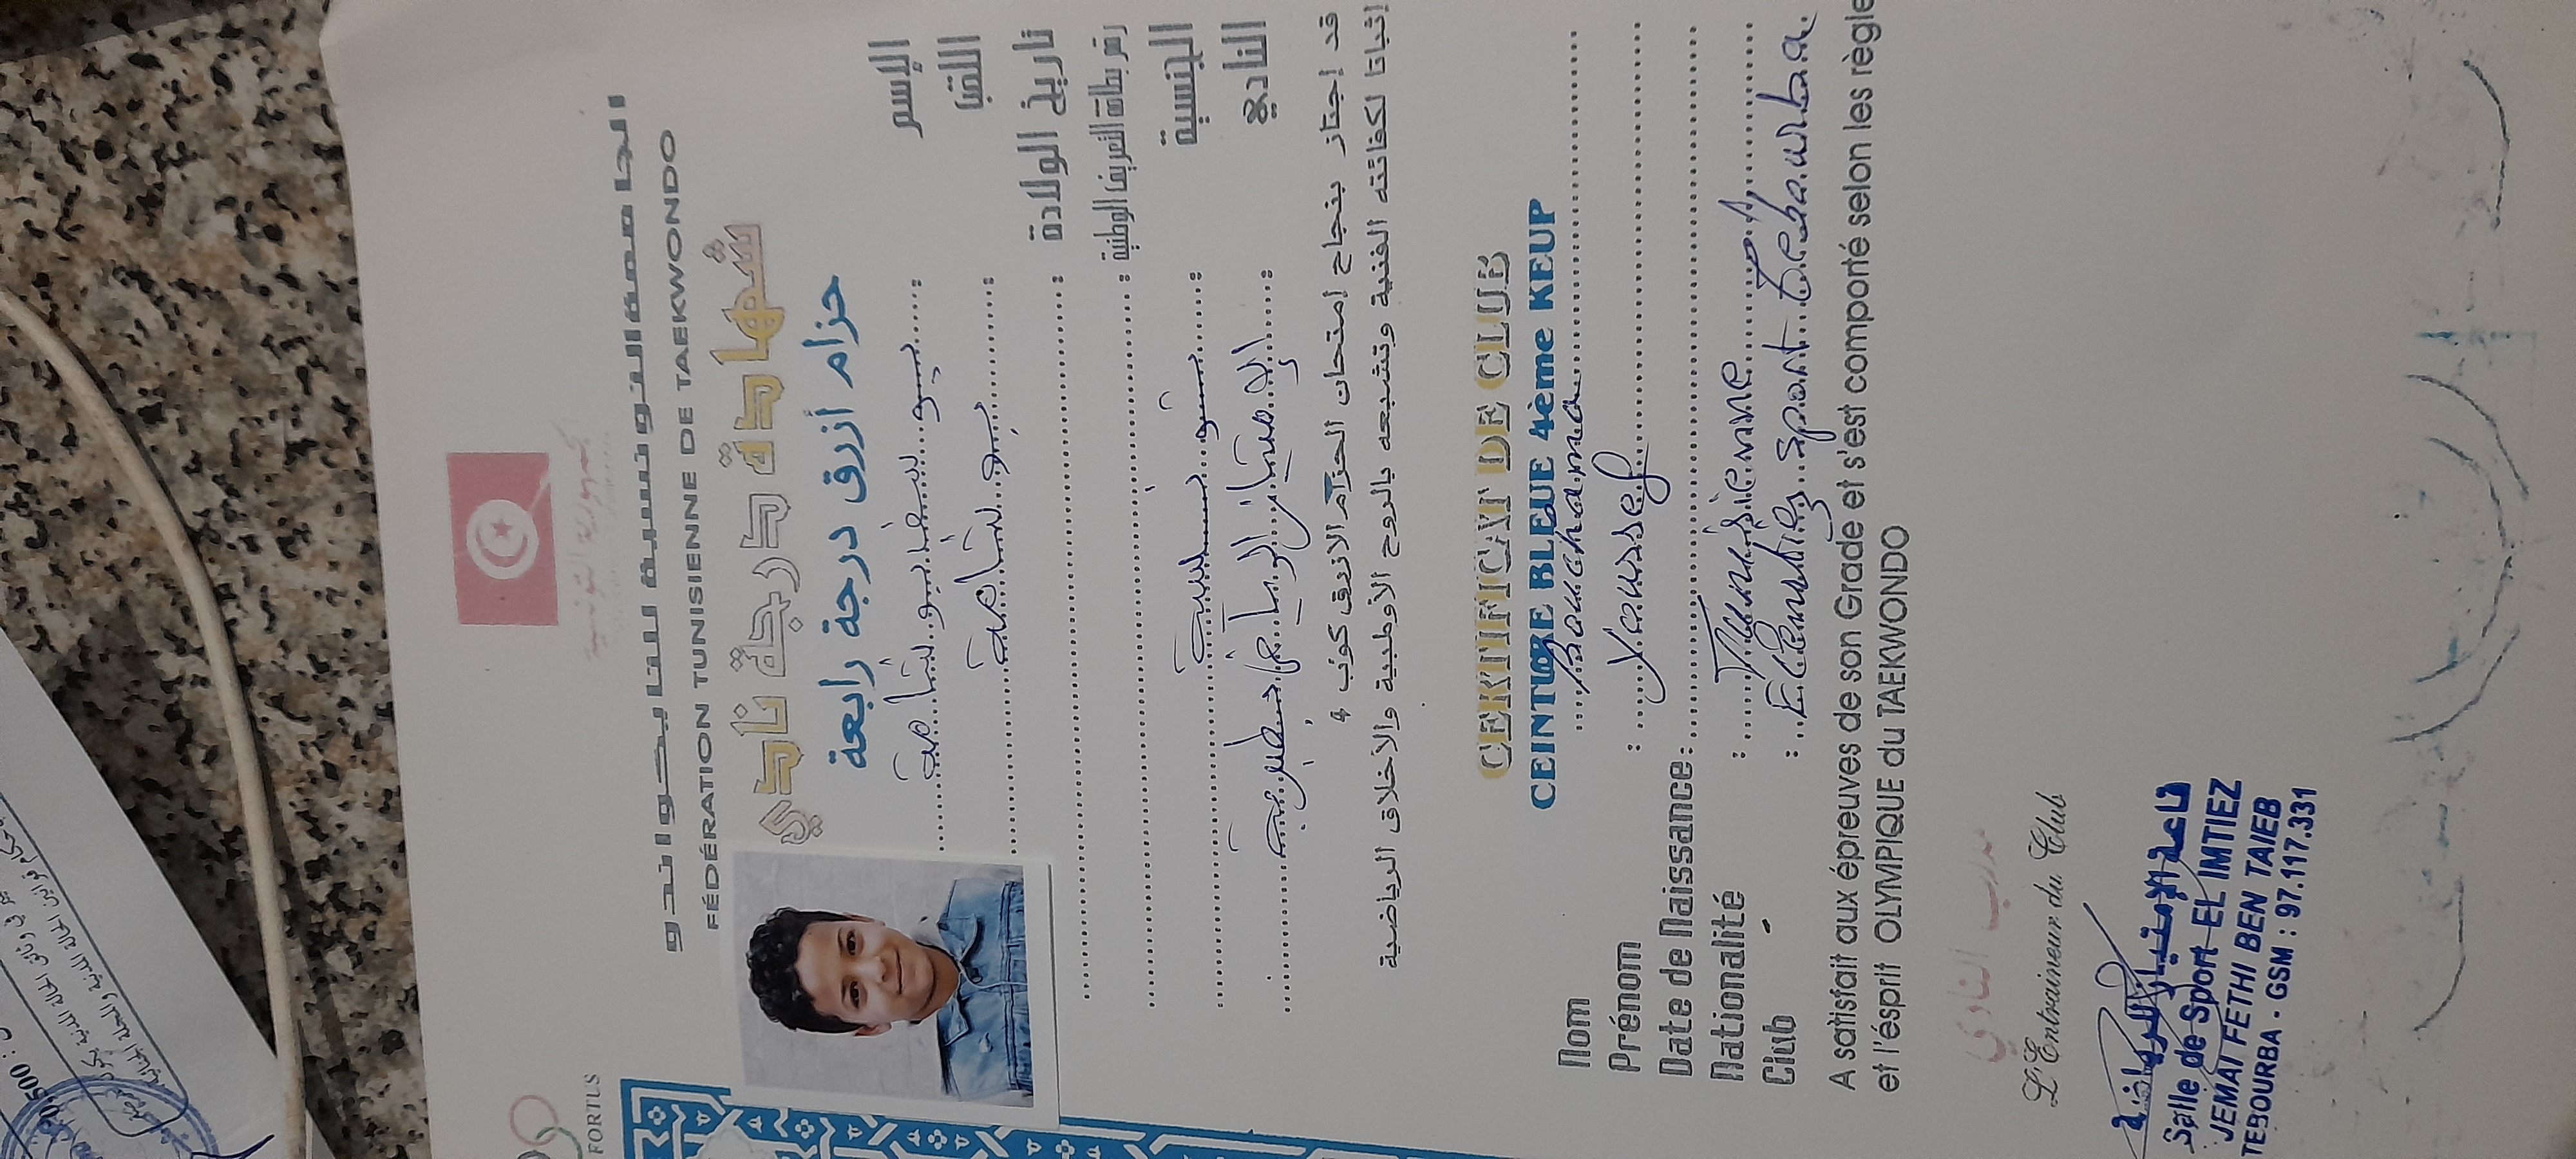 الجمهورية التونسية
الجامعة التونسية للتايكواندو
FÉDÉRATION TUNISIENNE DE TAEKWONDO
شهادة درجة نادي
حزام أزرق درجة رابعة
الإسم : يوسف بوشامة
اللقب : بوشامة
تاريخ الولادة :
رقم بطاقة التعريف الوطنية :
الجنسية : تونسية
النادي : الإمتياز الرياضي بطبربة
قد إجتاز بنجاح إمتحان الحزام الازرق كوب 4
إثباتا لكفائته الفنية وتشبعه بالروح الأولمبية والأخلاق الرياضية
CERTIFICAT DE CLUB
CEINTURE BLEUE 4ème KEUP
Nom Bouchama
Prénom : Youssef
Date de Naissance :
Nationalité : Tunisienne
Club : El Emtiez Sport Tebourba
A satisfait aux épreuves de son Grade et s'est comporté selon les règle
et l'ésprit OLYMPIQUE du TAEKWONDO
مدرب النادي
L'Entraineur du Club
قاعة الإمتياز الرياضية
Salle de Sport EL IMTIEZ
JEMAI FETHI BEN TAIEB
TEBOURBA - GSM : 97.117.331
FORTUS